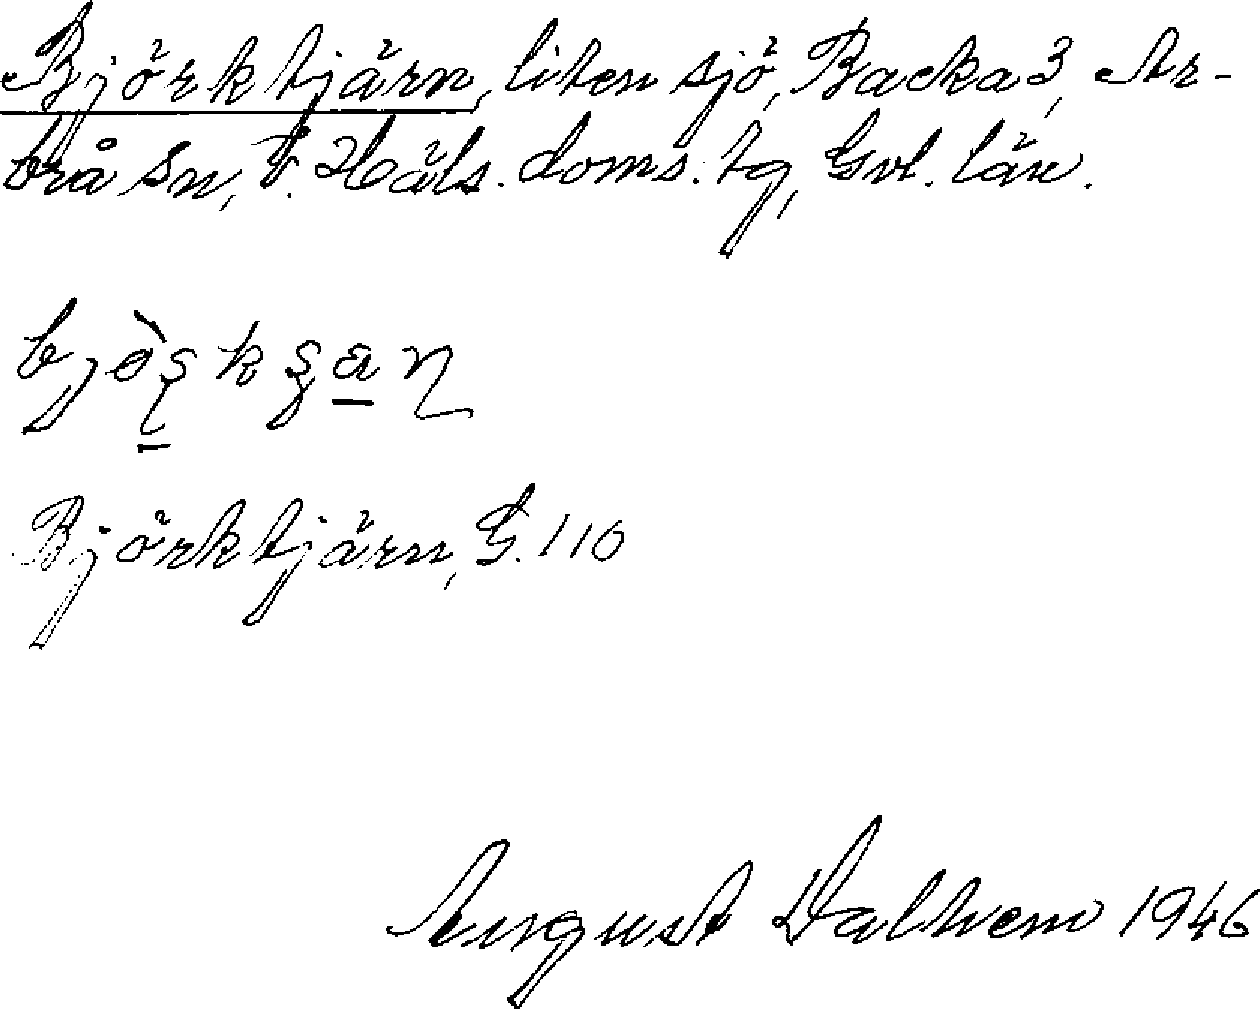 Björktjärn, liten sjö, Backa 3, Ar-
brå sn, V. Häls. doms. tg, Gvl. län.
Björktjärn, G. 110
August Dalhem 1946